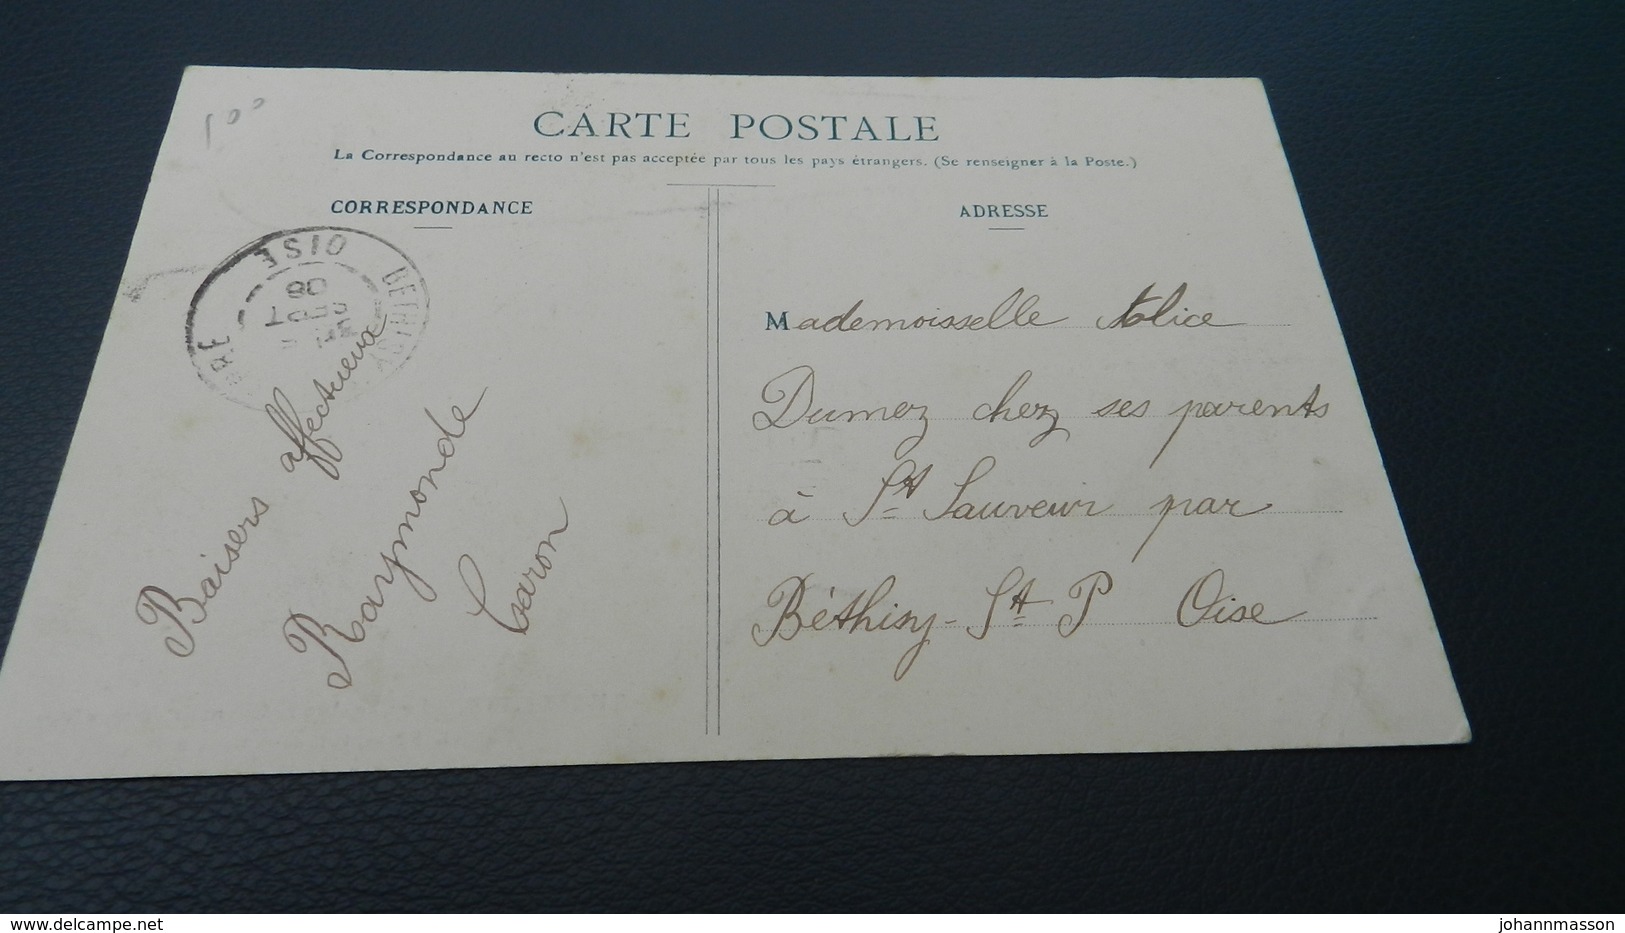 100
CARTE POSTALE
La Correspondance au recto n'est pas acceptée par tous les pays étrangers. (Se renseigner à la Poste.)
CORRESPONDANCE
OISE
08
Baisers affectueux
Raymonde
Caron
ADRESSE
Mademoisselle Alice
Dumez chez ses parents
à St Sauveur par
Béthisy-St P Oise
johannmasson